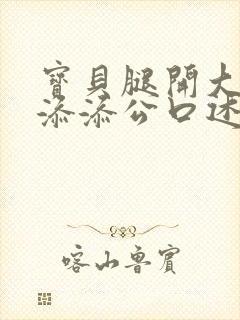 寶貝腿開大
添添公口述
喀山魯賓